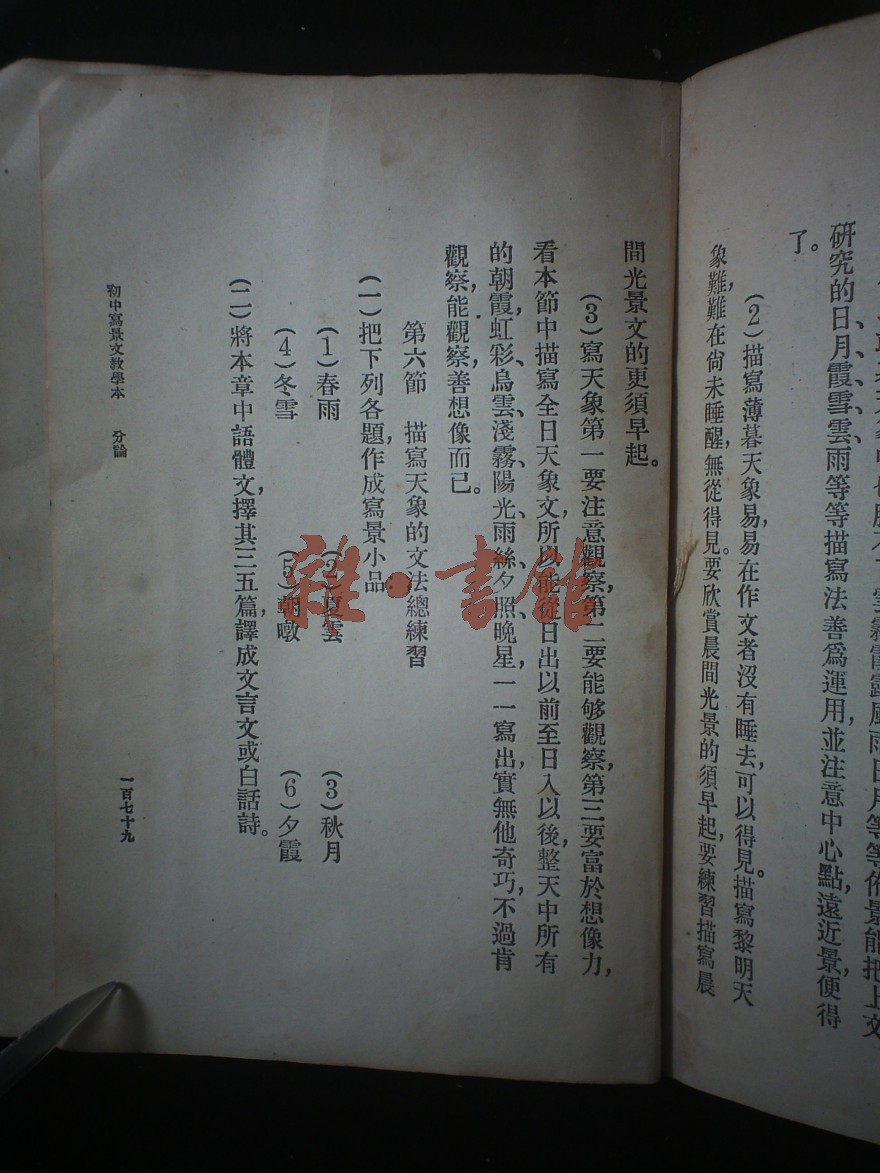 研究的日、月、霞、雪、雲、雨等等描寫法善爲運用，並注意中心點，遠近景，便得
了。
（2）描寫薄暮天象易，易在作文者沒有睡去，可以得見。描寫黎明天
象難，難在尙未睡醒，無從得見。要欣賞晨間光景的須早起，要練習描寫晨
間光景文的更須早起。
（3）寫天象第一要注意觀察，第二要能够觀察，第三要富於想像力，
看本節中描寫全日天象文，所以能從日出以前至日入以後，整天中所有
的朝霞，虹彩、烏雲、淺霧、陽光、雨絲、夕照、晚星，一一寫出，實無他奇巧，不過肯
觀察，能觀察，善想像而已。
第六節　描寫天象的文法總練習
（一）把下列各題，作成寫景小品：
（1）春雨　（2）夏雲　（3）秋月
（4）冬雪　（5）朝暾　（6）夕霞
（二）將本章中語體文，擇其三五篇，譯成文言文或白話詩。
初中寫景文教學本　分論
一百七十九
雜·書館